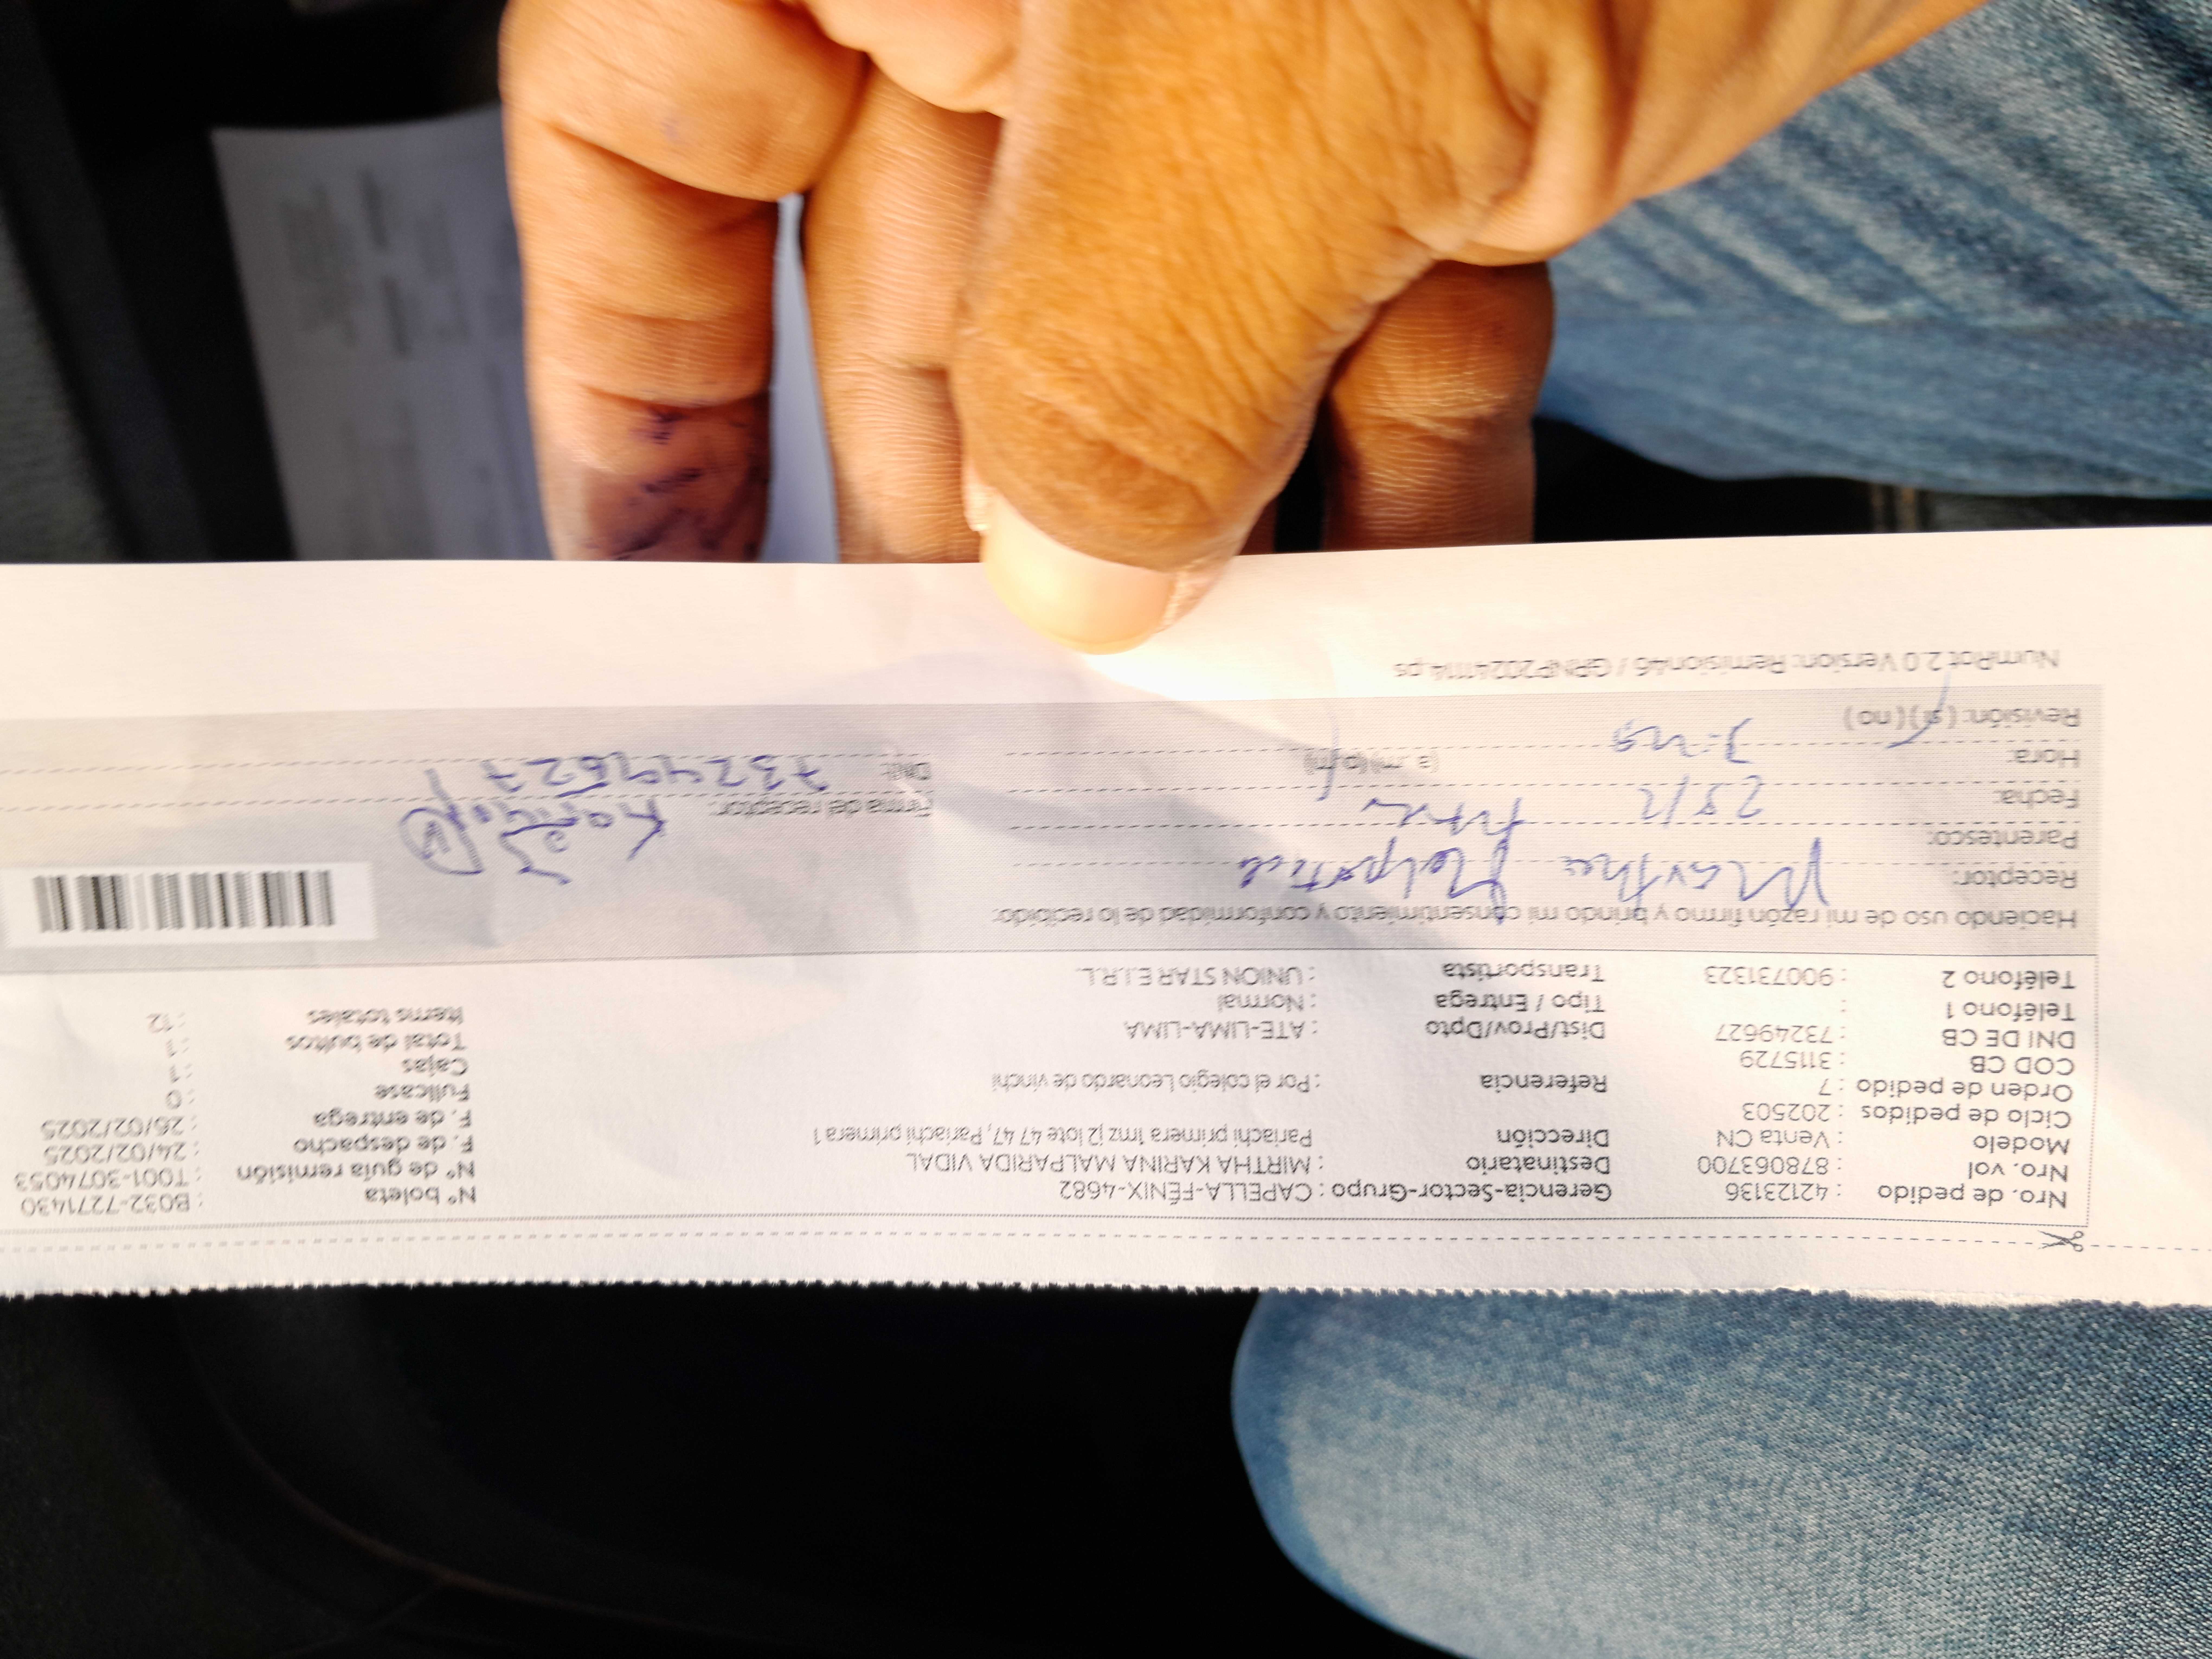 Nro. de pedido : 42123136 Gerencia-Sector-Grupo : CAPELLA-FÉNIX-4682 N° boleta : B032-7271430
Nro. vol : 878063700 Destinatario : MIRTHA KARINA MALPARIDA VIDAL N° de guía remisión : T001-3074053
Modelo : Venta CN Dirección Pariachi primera 1mz j2 lote 47 47, Pariachi primera 1 F. de despacho : 24/02/2025
Ciclo de pedidos : 202503 F. de entrega : 26/02/2025
Orden de pedido : 7 Referencia : Por el colegio Leonardo de vinchi Fullcase : 0
COD CB : 3115729 Cajas : 1
DNI DE CB : 73249627 Dist/Prov/Dpto : ATE-LIMA-LIMA Total de bultos : 1
Teléfono 1 : Tipo / Entrega : Normal Items totales : 12
Teléfono 2 : 900731323 Transportista : UNION STAR E.I.R.L.
Haciendo uso de mi razón firmo y brindo mi consentimiento y conformidad de lo recibido:
Receptor: Malpartida
Parentesco: Firma del receptor:
Fecha: DNI: 73249627
Hora: (a.m)(p.m)
Revisión: (si) (no)
NumRot 2.0 Version: Remision46 / GRNP20241114.ps